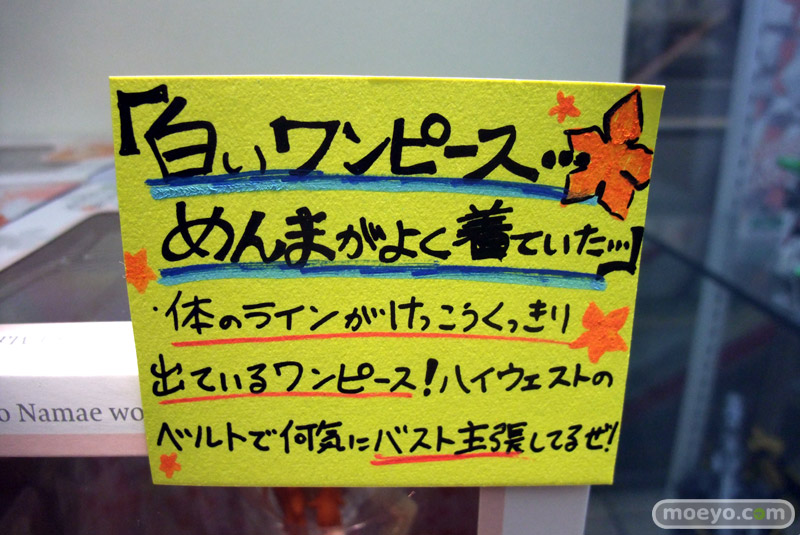 「白いワンピース…
めんまがよく着ていた…」
体のラインがけっこうくっきり
出ているワンピース!ハイウェストの
ベルトで何気にバスト主張してるぜ!
o Namae wo
moeyo.com